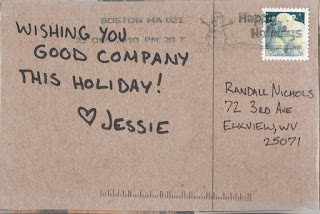 BOSTON MA 021
Happy
Holidays
PM 20 T
WISHING YOU
GOOD COMPANY
THIS HOLIDAY!
♡ JESSIE
USA
RANDALL NICHOLS
72 3RD AVE
ELKVIEW, WV
25071